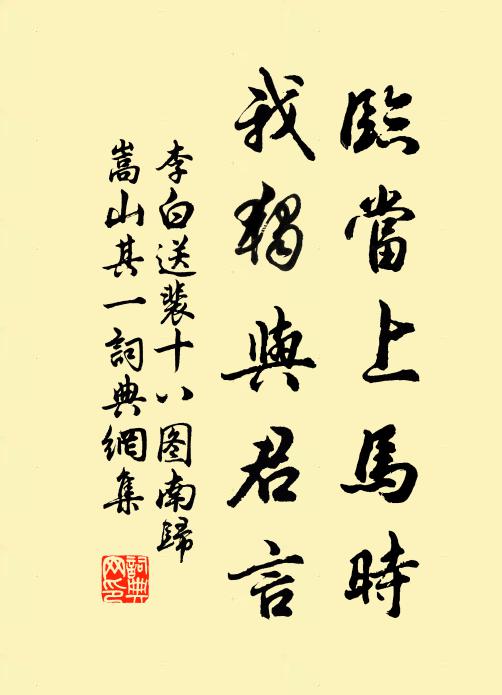 臨當上馬時
我獨與君言
李白送裴十八图南歸
嵩山其一詞典網集
詞典网印